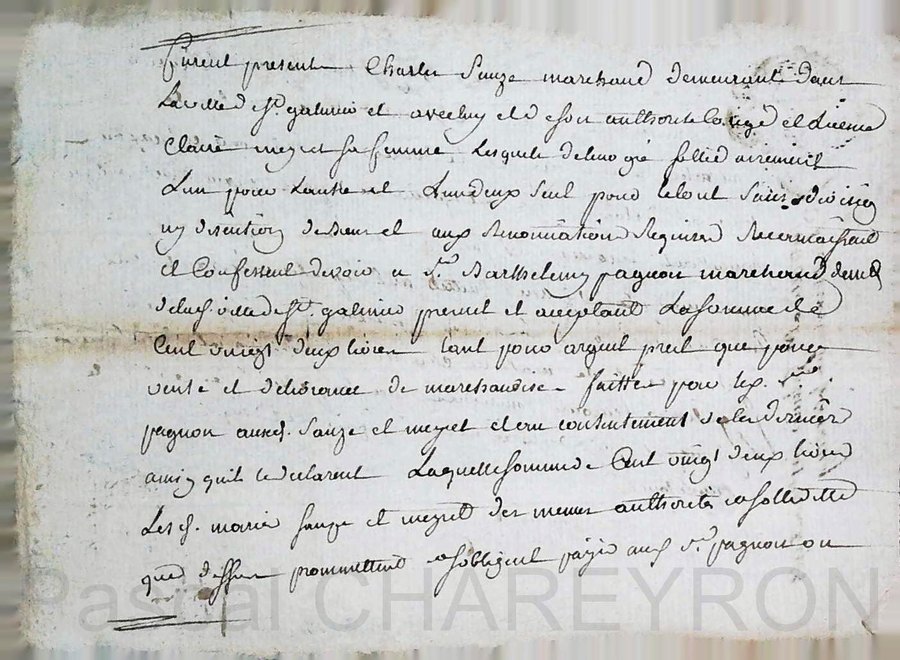 furent present Charles Sauze marchand demeurant dans
la ville de st. galmier et avec luy et de son authorité congé et licence
Claire meyet sa femme lesquels de leur gré sollidairement
l'un pour l'autre et l'un deux seul pour le tout sans division
ny disention de leur et aux renontiation requises recermaissent
et Confessent devoir a sr. Barthelemy pagnon marchand dem.
de lad. ville de st. galmier present et acceptant La somme de
Cent vingt deux livres tant pour argent pret que pour
vente et delivrance de marchandise faitte par led. sieur
pagnon auxd. Sauze et meyet et du consentement de la derniere
ainsy quils le declarent Laquelle somme de Cent vingt deux livres
Lesd. mariés sauze et meyet des memes authorité sollidité
que dessus promettent obligent payer aud. sr. pagnon ou
Pascal CHAREYRON